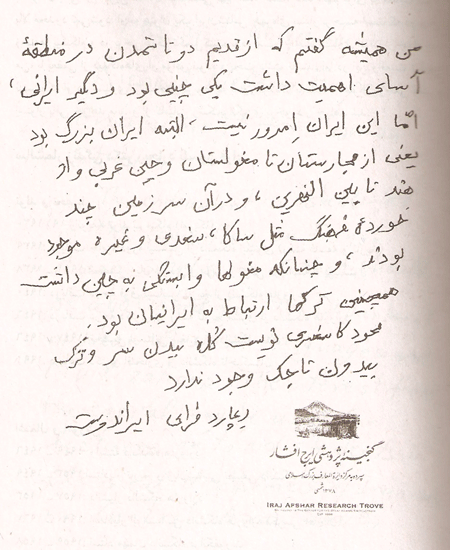 من همیشه گفتم که از قدیم دو تا تمدن در منطقهٔ
آسای اهمیت داشت یکی چینی بود و دیگر ایرانی،
امّا این ایران امروز نیست، البته ایران بزرگ بود
یعنی از مجارستان تا مغولستان و چین غربی و از
هند تا بین النهرین، و در آن سرزمین چند
خوردهٔ فرهنگ مثل ساکا، سغدی و غیره موجود
بودند، و چنانکه مغولها وابستگی به چین داشت
همچنین ترکها ارتباط به ایرانیان بود.
محمود کاشغری نویست کُله بیدن سر و ترک
بیدون تاجک وجود ندارد
ریچارد فرای ایراندوست
گنجینه پژوهشی ایرج افشار
سپرده به مرکز دایرة المعارف بزرگ اسلامی
۱۳۷۸ شمسی
IRAJ AFSHAR RESEARCH TROVE